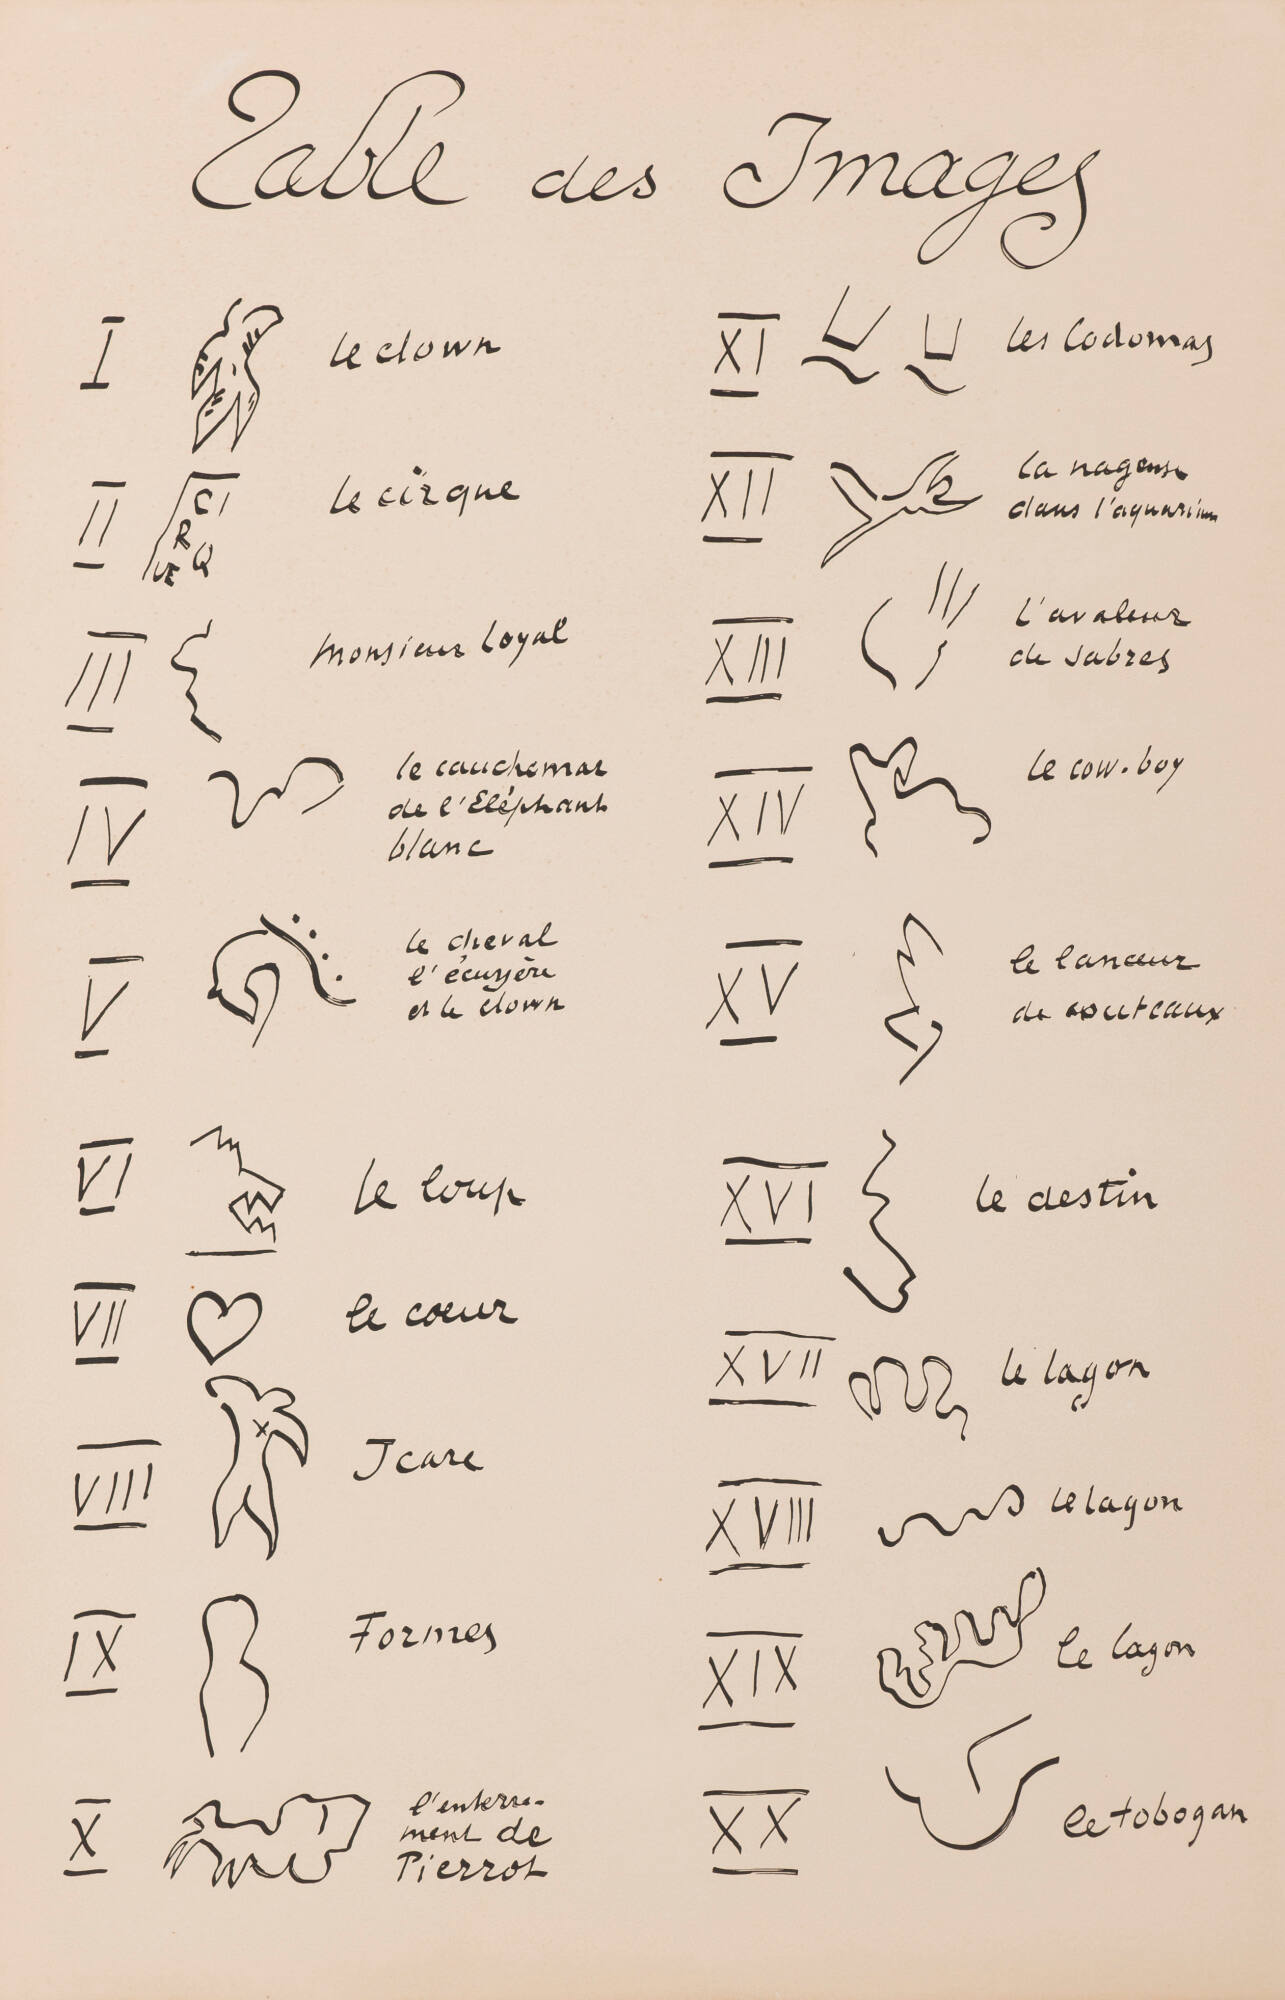 Table des Images
I
le clown
II
CI
R
Q
UE
le cirque
III
Monsieur Loyal
IV
le cauchemar
de l'Eléphant
blanc
V
le cheval
l'écuyère
et le clown
VI
le loup
VII
le coeur
VIII
Icare
IX
Formes
X
l'enterre-
ment de
Pierrot
XI
les Codomas
XII
la nageuse
dans l'aquarium
XIII
l'avaleur
de sabres
XIV
le cow-boy
XV
le lanceur
de couteaux
XVI
le destin
XVII
le lagon
XVIII
le lagon
XIX
le lagon
XX
le tobogan